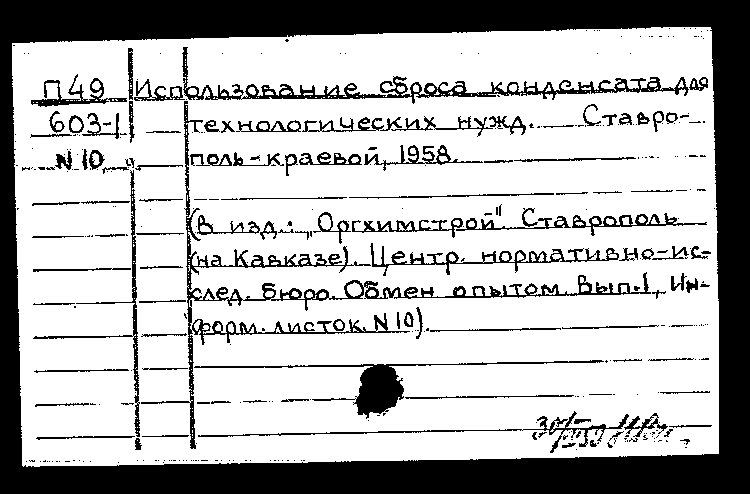 П49 Использование сброса конденсата для
603-1 технологических нужд. Ставро-
N 10 поль-краевой, 1958.
(В изд.: "Оргхимстрой" Ставрополь
(на Кавказе). Центр. нормативно-ис-
след. бюро. Обмен опытом. Вып.1, Ин-
форм. листок. N 10).